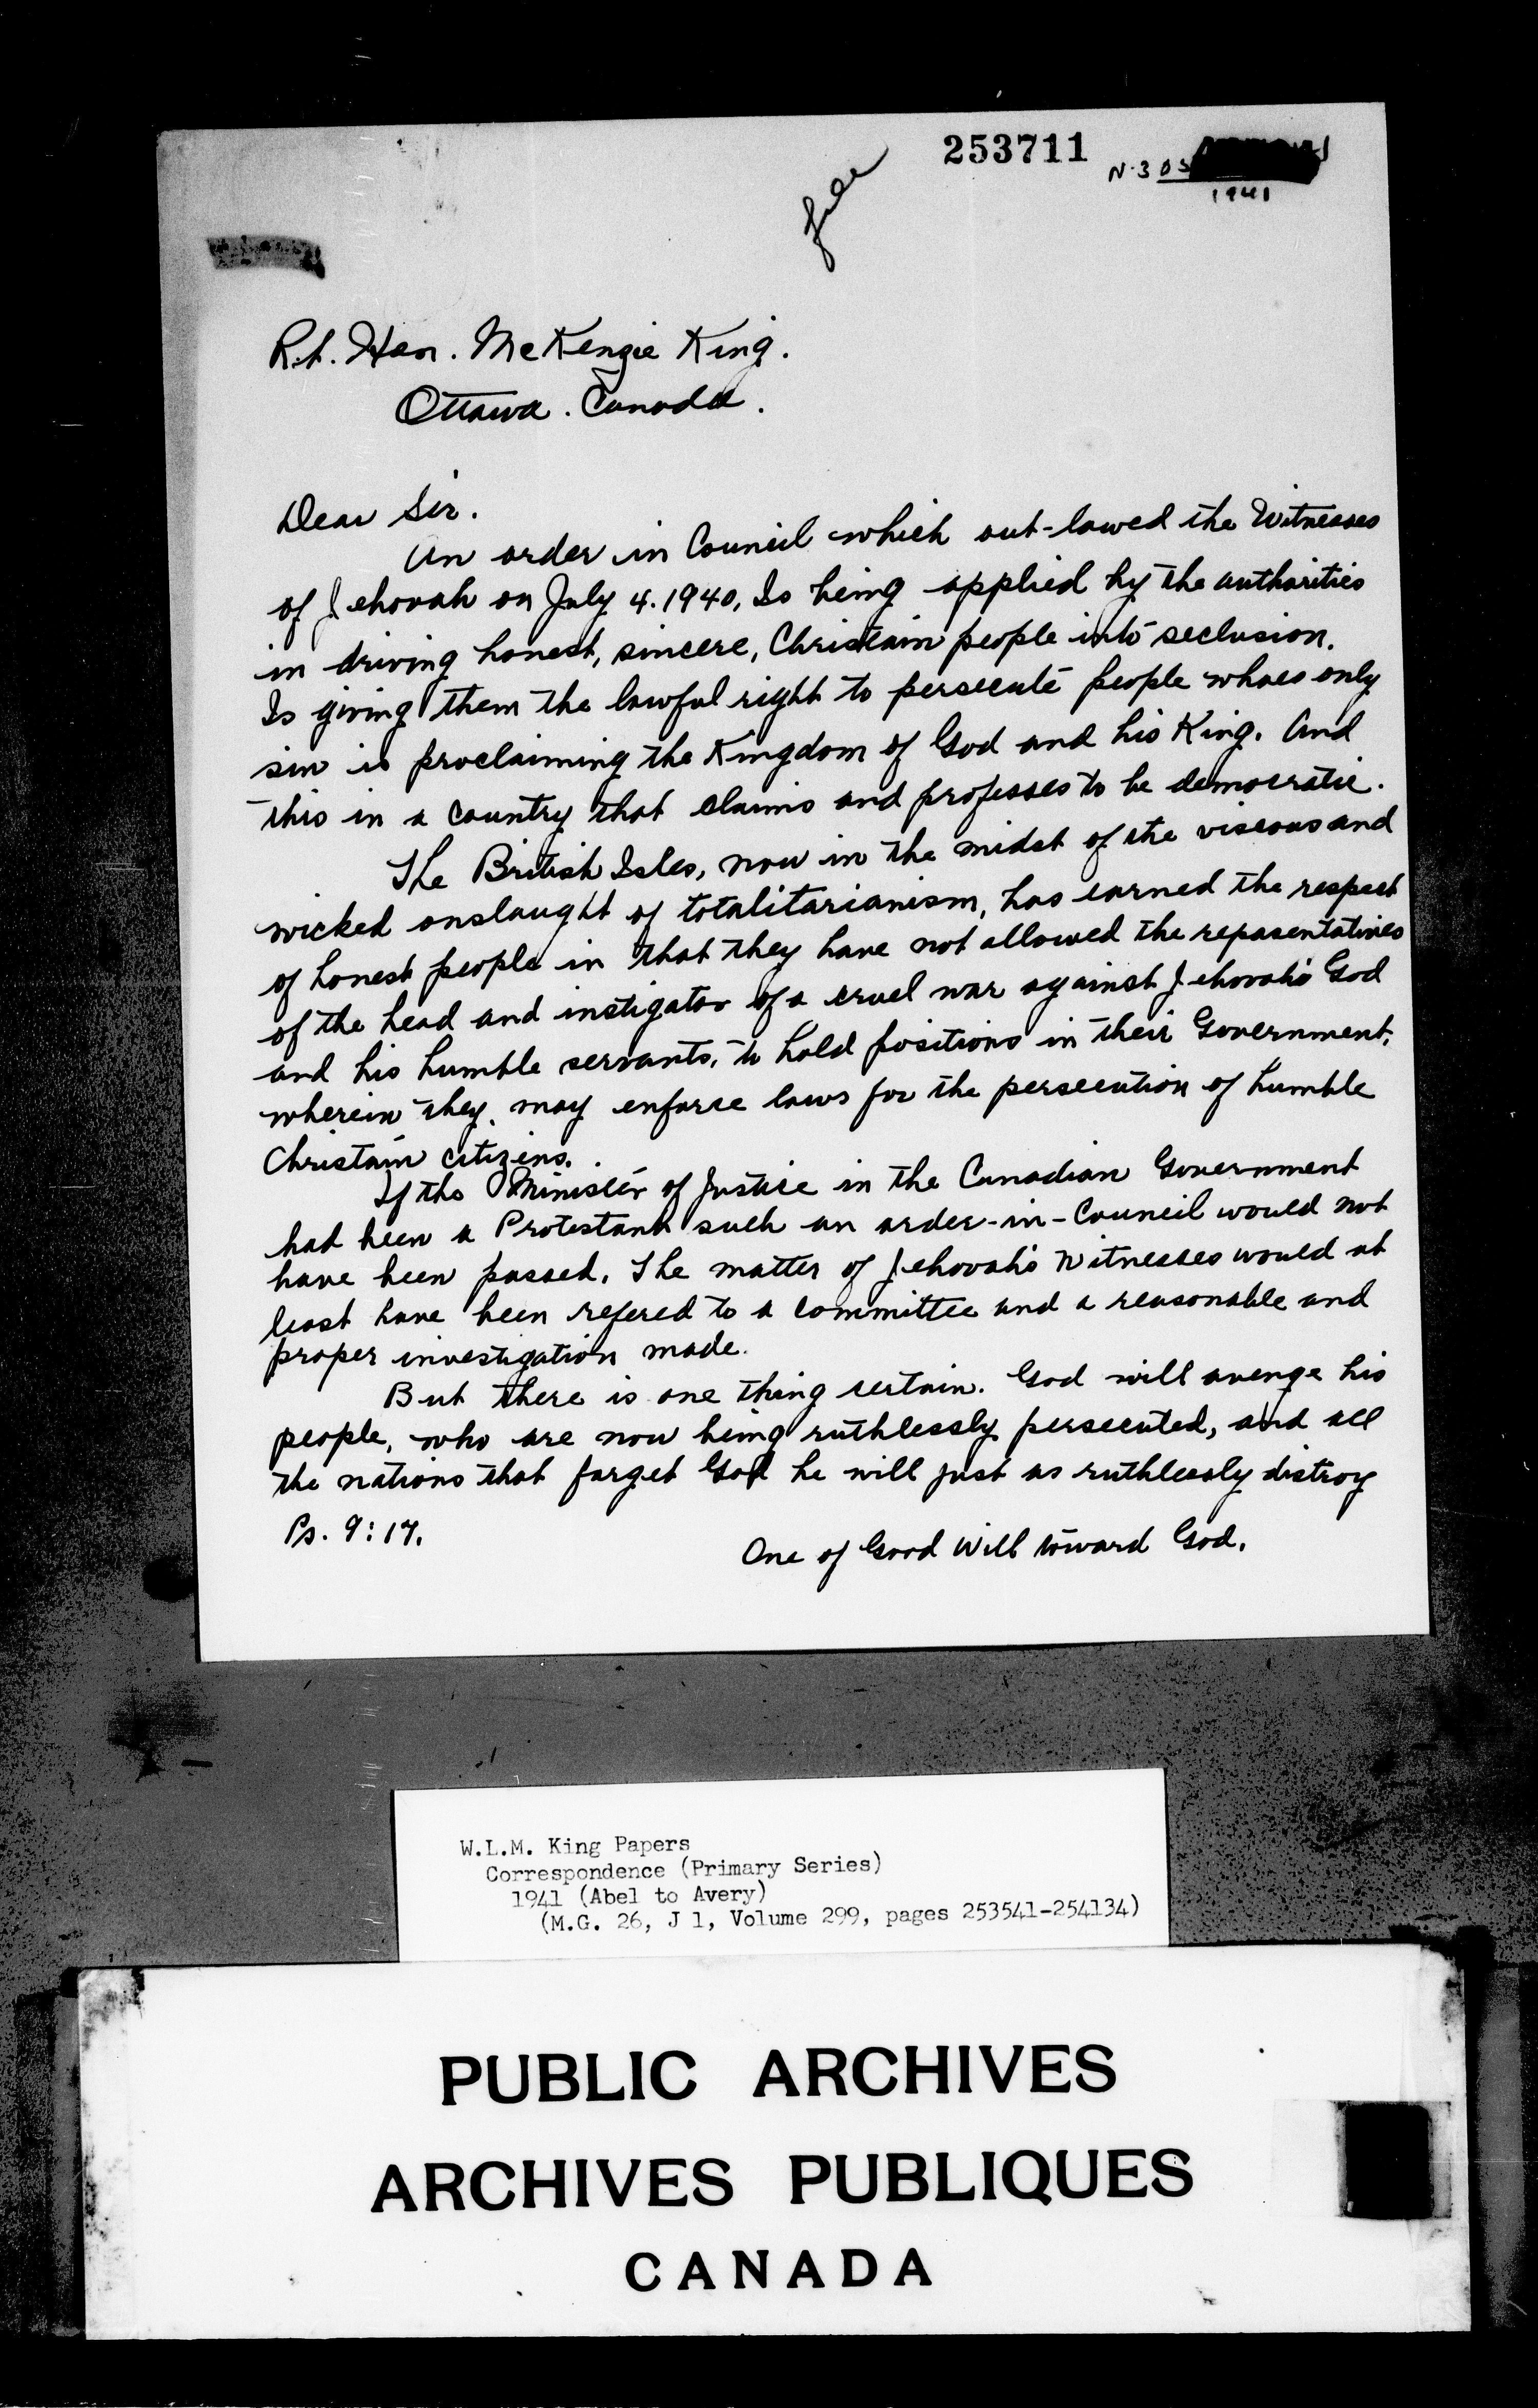 253711
file
N·305
1941
Rt. Hon. McKenzie King.
Ottawa. Canada.
Dear Sir.
An order in Council which out-lawed the Witnesses
of Jehovah on July 4. 1940, Is being applied by the authorities
in driving honest, sincere, Christain people into seclusion.
Is giving them the lawful right to persecute people whoes only
sin is proclaiming the Kingdom of God and his King. And
this in a country that claims and professes to be democratic.
The British Isles, now in the midst of the viscous and
wicked onslaught of totalitarianism, has earned the respect
of honest people in that they have not allowed the repasentatives
of the head and instigator of a cruel war against Jehovah's God
and his humble servants, to hold positions in their Government,
wherein they may enforce laws for the persecution of humble
Christain citizens.
If the Minister of Justice in the Canadian Government
had been a Protestant such an order-in-Council would not
have been passed. The matter of Jehovah's Witnesses would at
least have been refered to a committee and a reasonable and
proper investigation made.
But there is one thing certain. God will avenge his
people, who are now being ruthlessly persecuted, and all
the nations that forget God he will just as ruthlessly distroy
Ps. 9:17.
One of Good Will toward God.
W.L.M. King Papers
Correspondence (Primary Series)
1941 (Abel to Avery)
(M.G. 26, J 1, Volume 299, pages 253541-254134)
PUBLIC ARCHIVES
ARCHIVES PUBLIQUES
CANADA